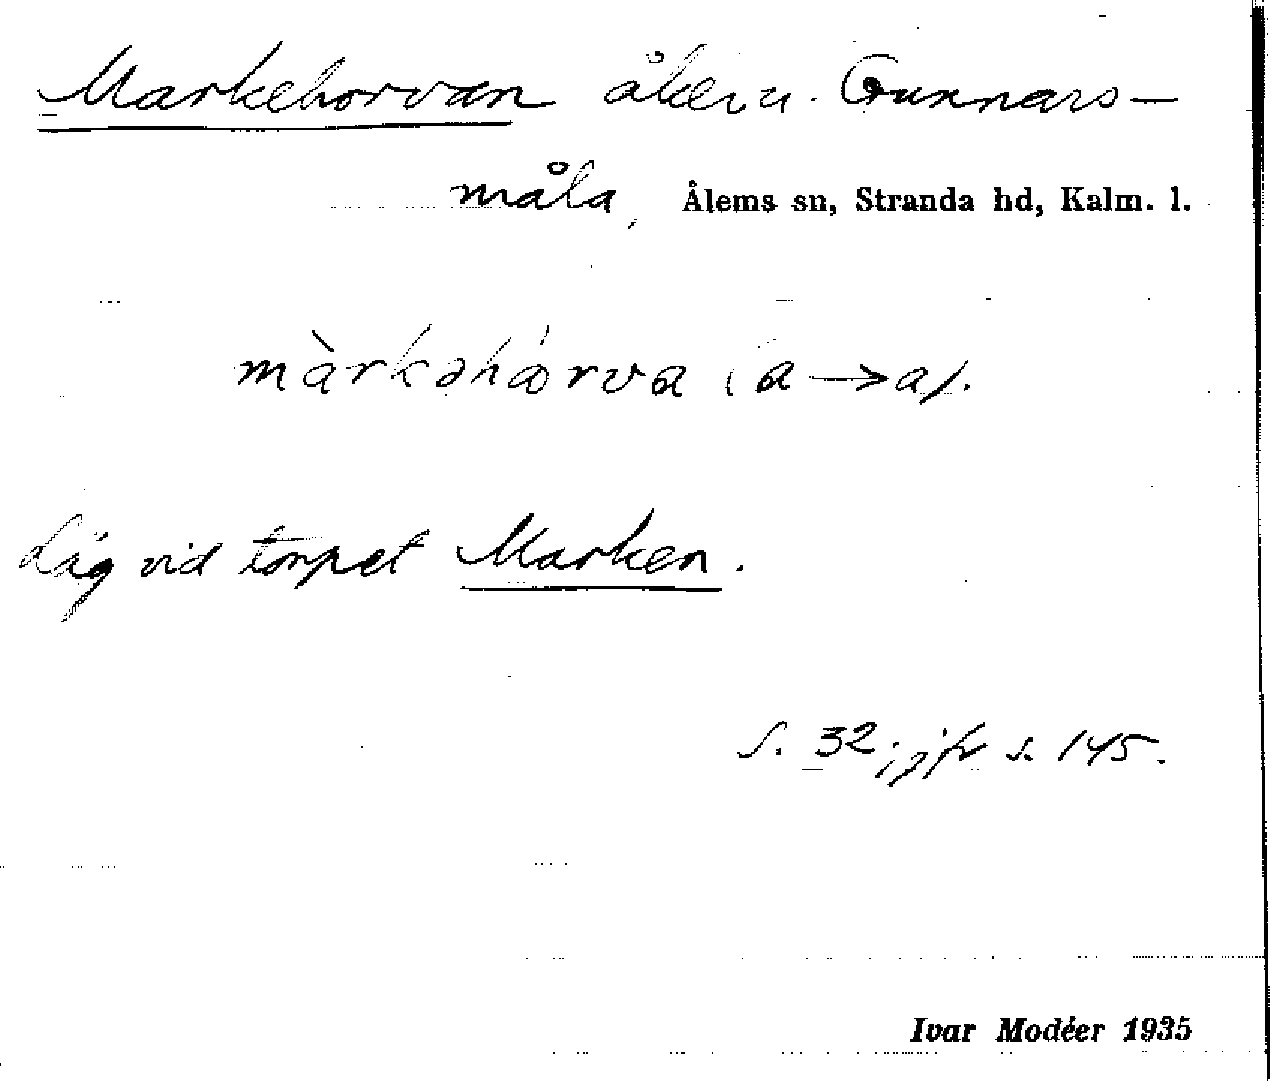 Markehorvan åker u. Gunnars-
måla, Ålems sn, Stranda hd, Kalm. l.
màrkəhá̊rva (a → a).
Låg vid torpet Marken.
S. 32; jfr s. 145.
Ivar Modéer 1935